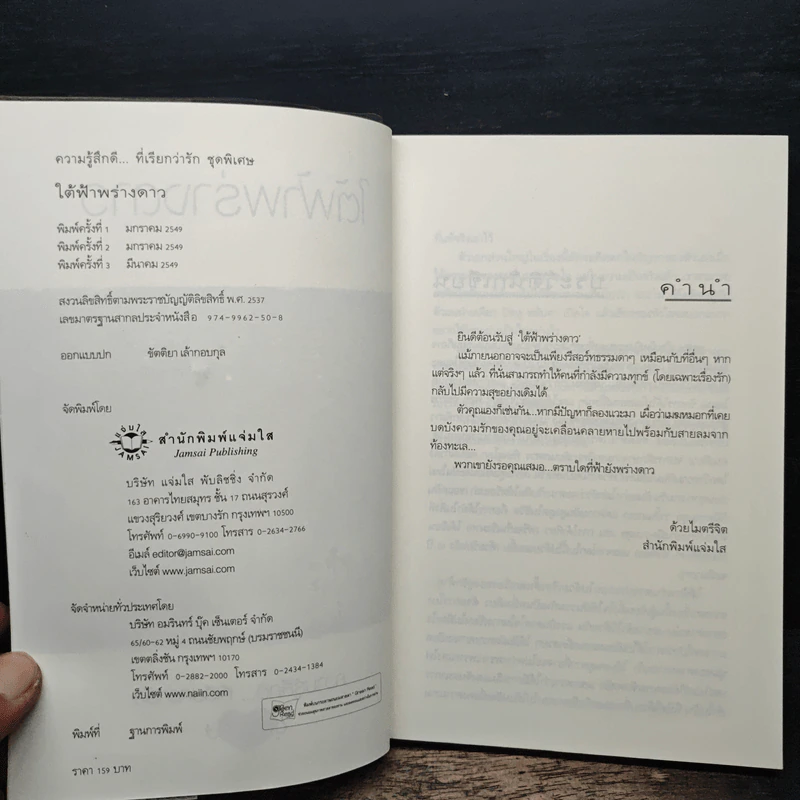 ความรู้สึกดี... ที่เรียกว่ารัก ชุดพิเศษ
ใต้ฟ้าพร่างดาว
พิมพ์ครั้งที่ 1 มกราคม 2549
พิมพ์ครั้งที่ 2 มกราคม 2549
พิมพ์ครั้งที่ 3 มีนาคม 2549
สงวนลิขสิทธิ์ตามพระราชบัญญัติลิขสิทธิ์ พ.ศ. 2537
เลขมาตรฐานสากลประจำหนังสือ 974-9962-50-8
ออกแบบปก ขัตติยา เล้ากอบกุล
จัดพิมพ์โดย
สำนักพิมพ์แจ่มใส
Jamsai Publishing
บริษัท แจ่มใส พับลิชชิ่ง จำกัด
163 อาคารไทยสมุทร ชั้น 17 ถนนสุรวงศ์
แขวงสุริยวงศ์ เขตบางรัก กรุงเทพฯ 10500
โทรศัพท์ 0-6990-9100 โทรสาร 0-2634-2766
อีเมล์ editor@jamsai.com
เว็บไซต์ www.jamsai.com
จัดจำหน่ายทั่วประเทศโดย
บริษัท อมรินทร์ บุ๊ค เซ็นเตอร์ จำกัด
65/60-62 หมู่ 4 ถนนชัยพฤกษ์ (บรมราชชนนี)
เขตตลิ่งชัน กรุงเทพฯ 10170
โทรศัพท์ 0-2882-2000 โทรสาร 0-2434-1384
เว็บไซต์ www.naiin.com
พิมพ์ที่ ฐานการพิมพ์
ราคา 159 บาท
คำนำ
ยินดีต้อนรับสู่ 'ใต้ฟ้าพร่างดาว'
แม้ภายนอกอาจจะเป็นเพียงรีสอร์ทธรรมดาๆ เหมือนกับที่อื่นๆ หาก
แต่จริงๆ แล้ว ที่นั่นสามารถทำให้คนที่กำลังมีความทุกข์ (โดยเฉพาะเรื่องรัก)
กลับไปมีความสุขอย่างเดิมได้
ตัวคุณเองก็เช่นกัน...หากมีปัญหาก็ลองแวะมา เผื่อว่าเมฆหมอกที่เคย
บดบังความรักของคุณอยู่จะเคลื่อนคลายหายไปพร้อมกับสายลมจาก
ท้องทะเล...
พวกเขายังรอคุณเสมอ...ตราบใดที่ฟ้ายังพร่างดาว
ด้วยไมตรีจิต
สำนักพิมพ์แจ่มใส